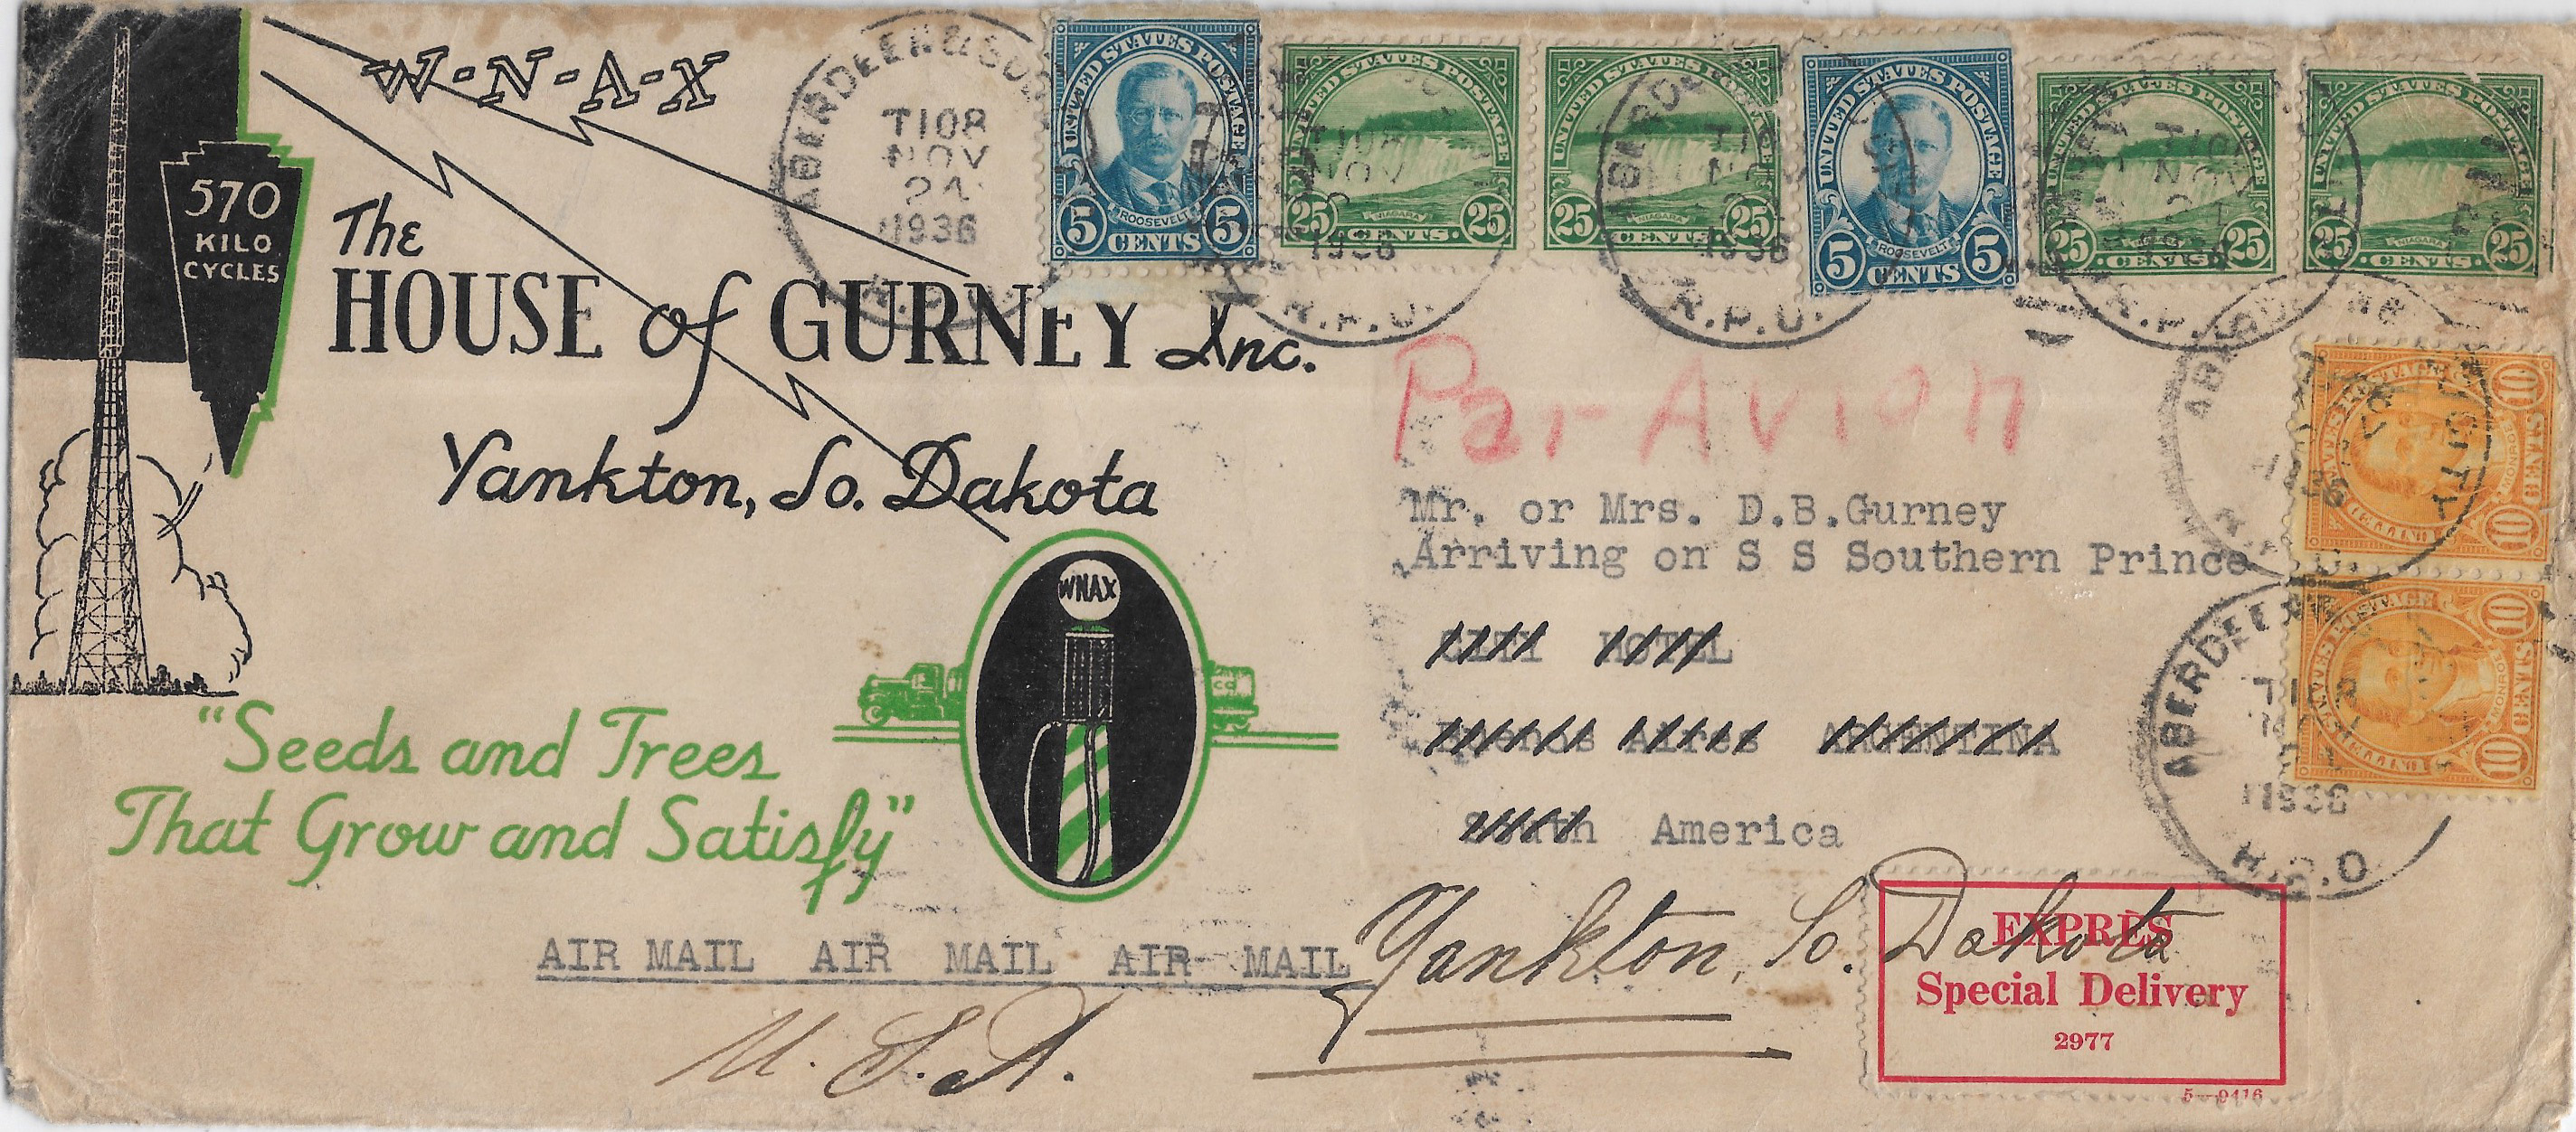 W-N-A-X
570
KILO
CYCLES
The
HOUSE of GURNEY Inc.
Yankton, So. Dakota
WNAX
"Seeds and Trees
That Grow and Satisfy"
AIR MAIL AIR MAIL AIR MAIL
U.S.A.
ABERDEEN &
T108
NOV
24
1936
R.P.O.
UNITED STATES POSTAGE
ROOSEVELT
5 CENTS 5
UNITED STATES POSTAGE
NIAGARA
25 CENTS 25
T108
NOV
1936
R.P.O.
UNITED STATES POSTAGE
NIAGARA
25 CENTS 25
1936
R.P.O.
UNITED STATES POSTAGE
ROOSEVELT
5 CENTS 5
UNITED STATES POSTAGE
NIAGARA
25 CENTS 25
T108
NOV
1936
R.P.
UNITED STATES POSTAGE
NIAGARA
25 CENTS 25
Par Avion
Mr. or Mrs. D.B.Gurney
Arriving on S S Southern Prince
CITY HOTEL
Buenos Aires ARGENTINA
South America
Yankton, So. Dakota
10 CENTS 10
MONROE
CITY
ABERDEEN
1936
R.P.O
10 CENTS 10
MONROE
EXPRÈS
Special Delivery
2977
5—9416